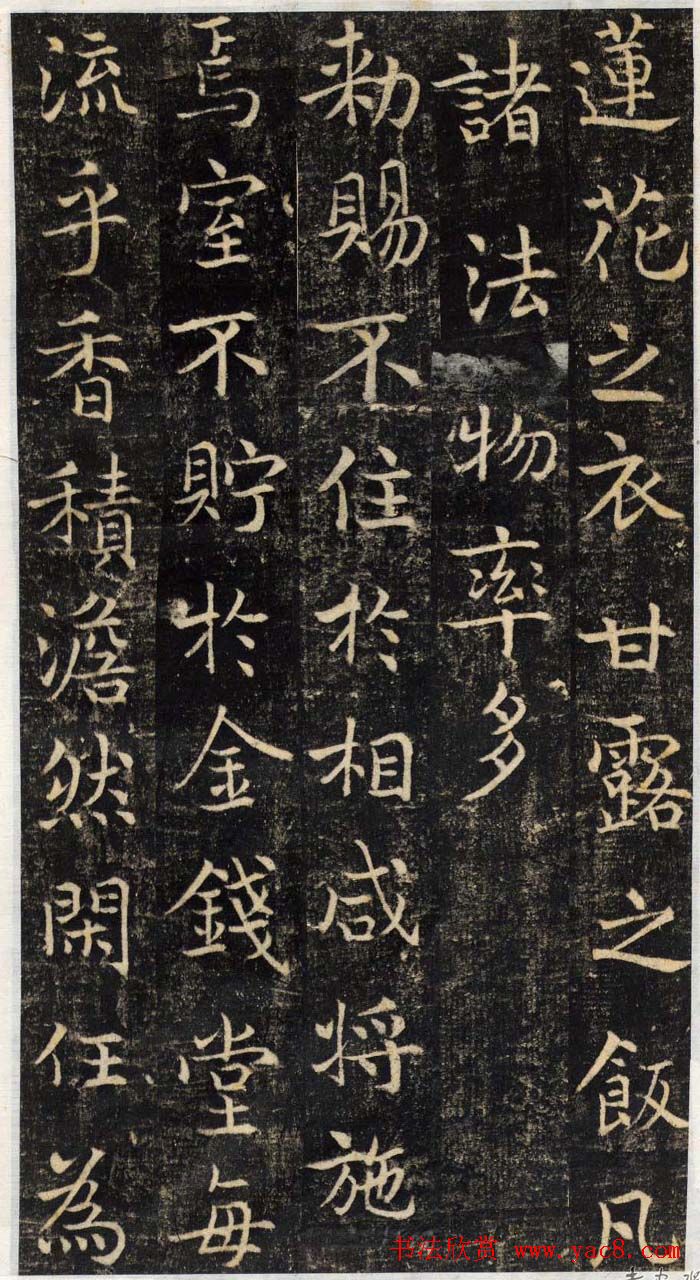 蓮花之衣甘露之飯凡
諸法物率多
勅賜不住於相咸將施
焉室不貯於金錢堂每
流乎香積澹然閑任為
书法欣赏 www.yac8.com